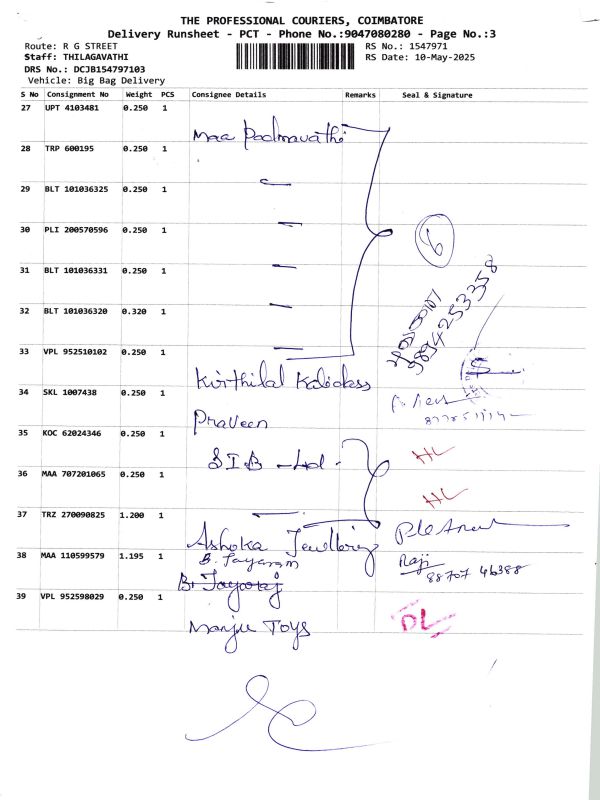 THE PROFESSIONAL COURIERS, COIMBATORE
Delivery Runsheet - PCT - Phone No.:9047080280 - Page No.:3
Route: R G STREET
RS No.: 1547971
Staff: THILAGAVATHI
RS Date: 10-May-2025
DRS No.: DCJB154797103
Vehicle: Big Bag Delivery
S No Consignment No Weight PCS Consignee Details Remarks Seal & Signature
27 UPT 4103481 0.250 1 Maa Padmavathi
28 TRP 600195 0.250 1
29 BLT 101036325 0.250 1
30 PLI 200570596 0.250 1 6
31 BLT 101036331 0.250 1
32 BLT 101036320 0.320 1
9894253358
33 VPL 952510102 0.250 1 Kirthilal Kalidass
34 SKL 1007438 0.250 1 Praveen
35 KOC 62024346 0.250 1 S I B Ltd. HL
36 MAA 707201065 0.250 1 HL
37 TRZ 270090825 1.200 1 Ashoka Jewllery
38 MAA 110599579 1.195 1 B. Jayaram Raji
88707 46388
B. Jayaraj
39 VPL 952598029 0.250 1 Manju Toys DL